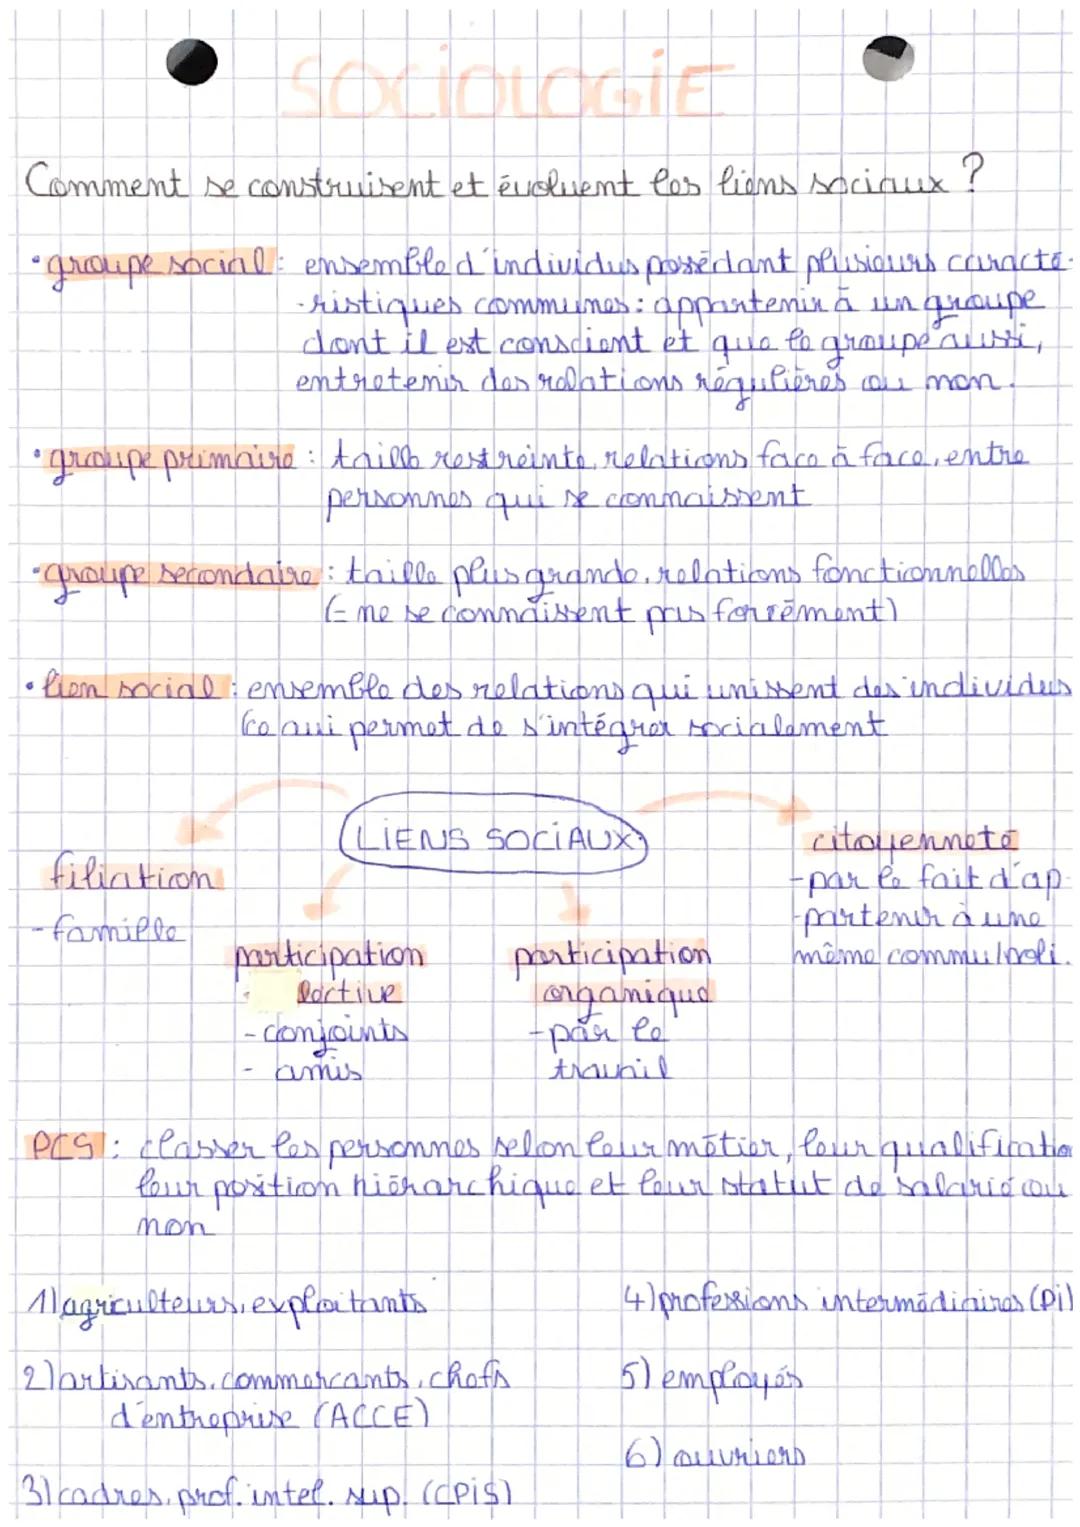 SOCIOLOGIE
Comment se construisent et évoluent les liens sociaux ?
• groupe social : ensemble d'individus possédant plusieurs caracté-
-ristiques communes : appartenir à un groupe
dont il est conscient et que le groupe aussi,
entretenir des relations régulières ou non.
• groupe primaire : taille restreinte, relations face à face, entre
personnes qui se connaissent
• groupe secondaire : taille plus grande, relations fonctionnelles
(= ne se connaissent pas forcément)
• lien social : ensemble des relations qui unissent des individus
(ce qui permet de s'intégrer socialement
LIENS SOCIAUX
filiation
- famille
participation
lective
- conjoints
- amis
participation
organique
- par le
travail
citoyenneté
- par le fait d'ap-
-partenir à une
même commu/poli.
PCS : classer les personnes selon leur métier, leur qualificatio
leur position hiérarchique et leur statut de salarié ou
non
1) agriculteurs, exploitants
2) artisants, commercants, chefs
d'entreprise (ACCE)
3) cadres, prof. intel. sup. (CPIS)
4) professions intermédiaires (Pi)
5) employés
6) ouvriers